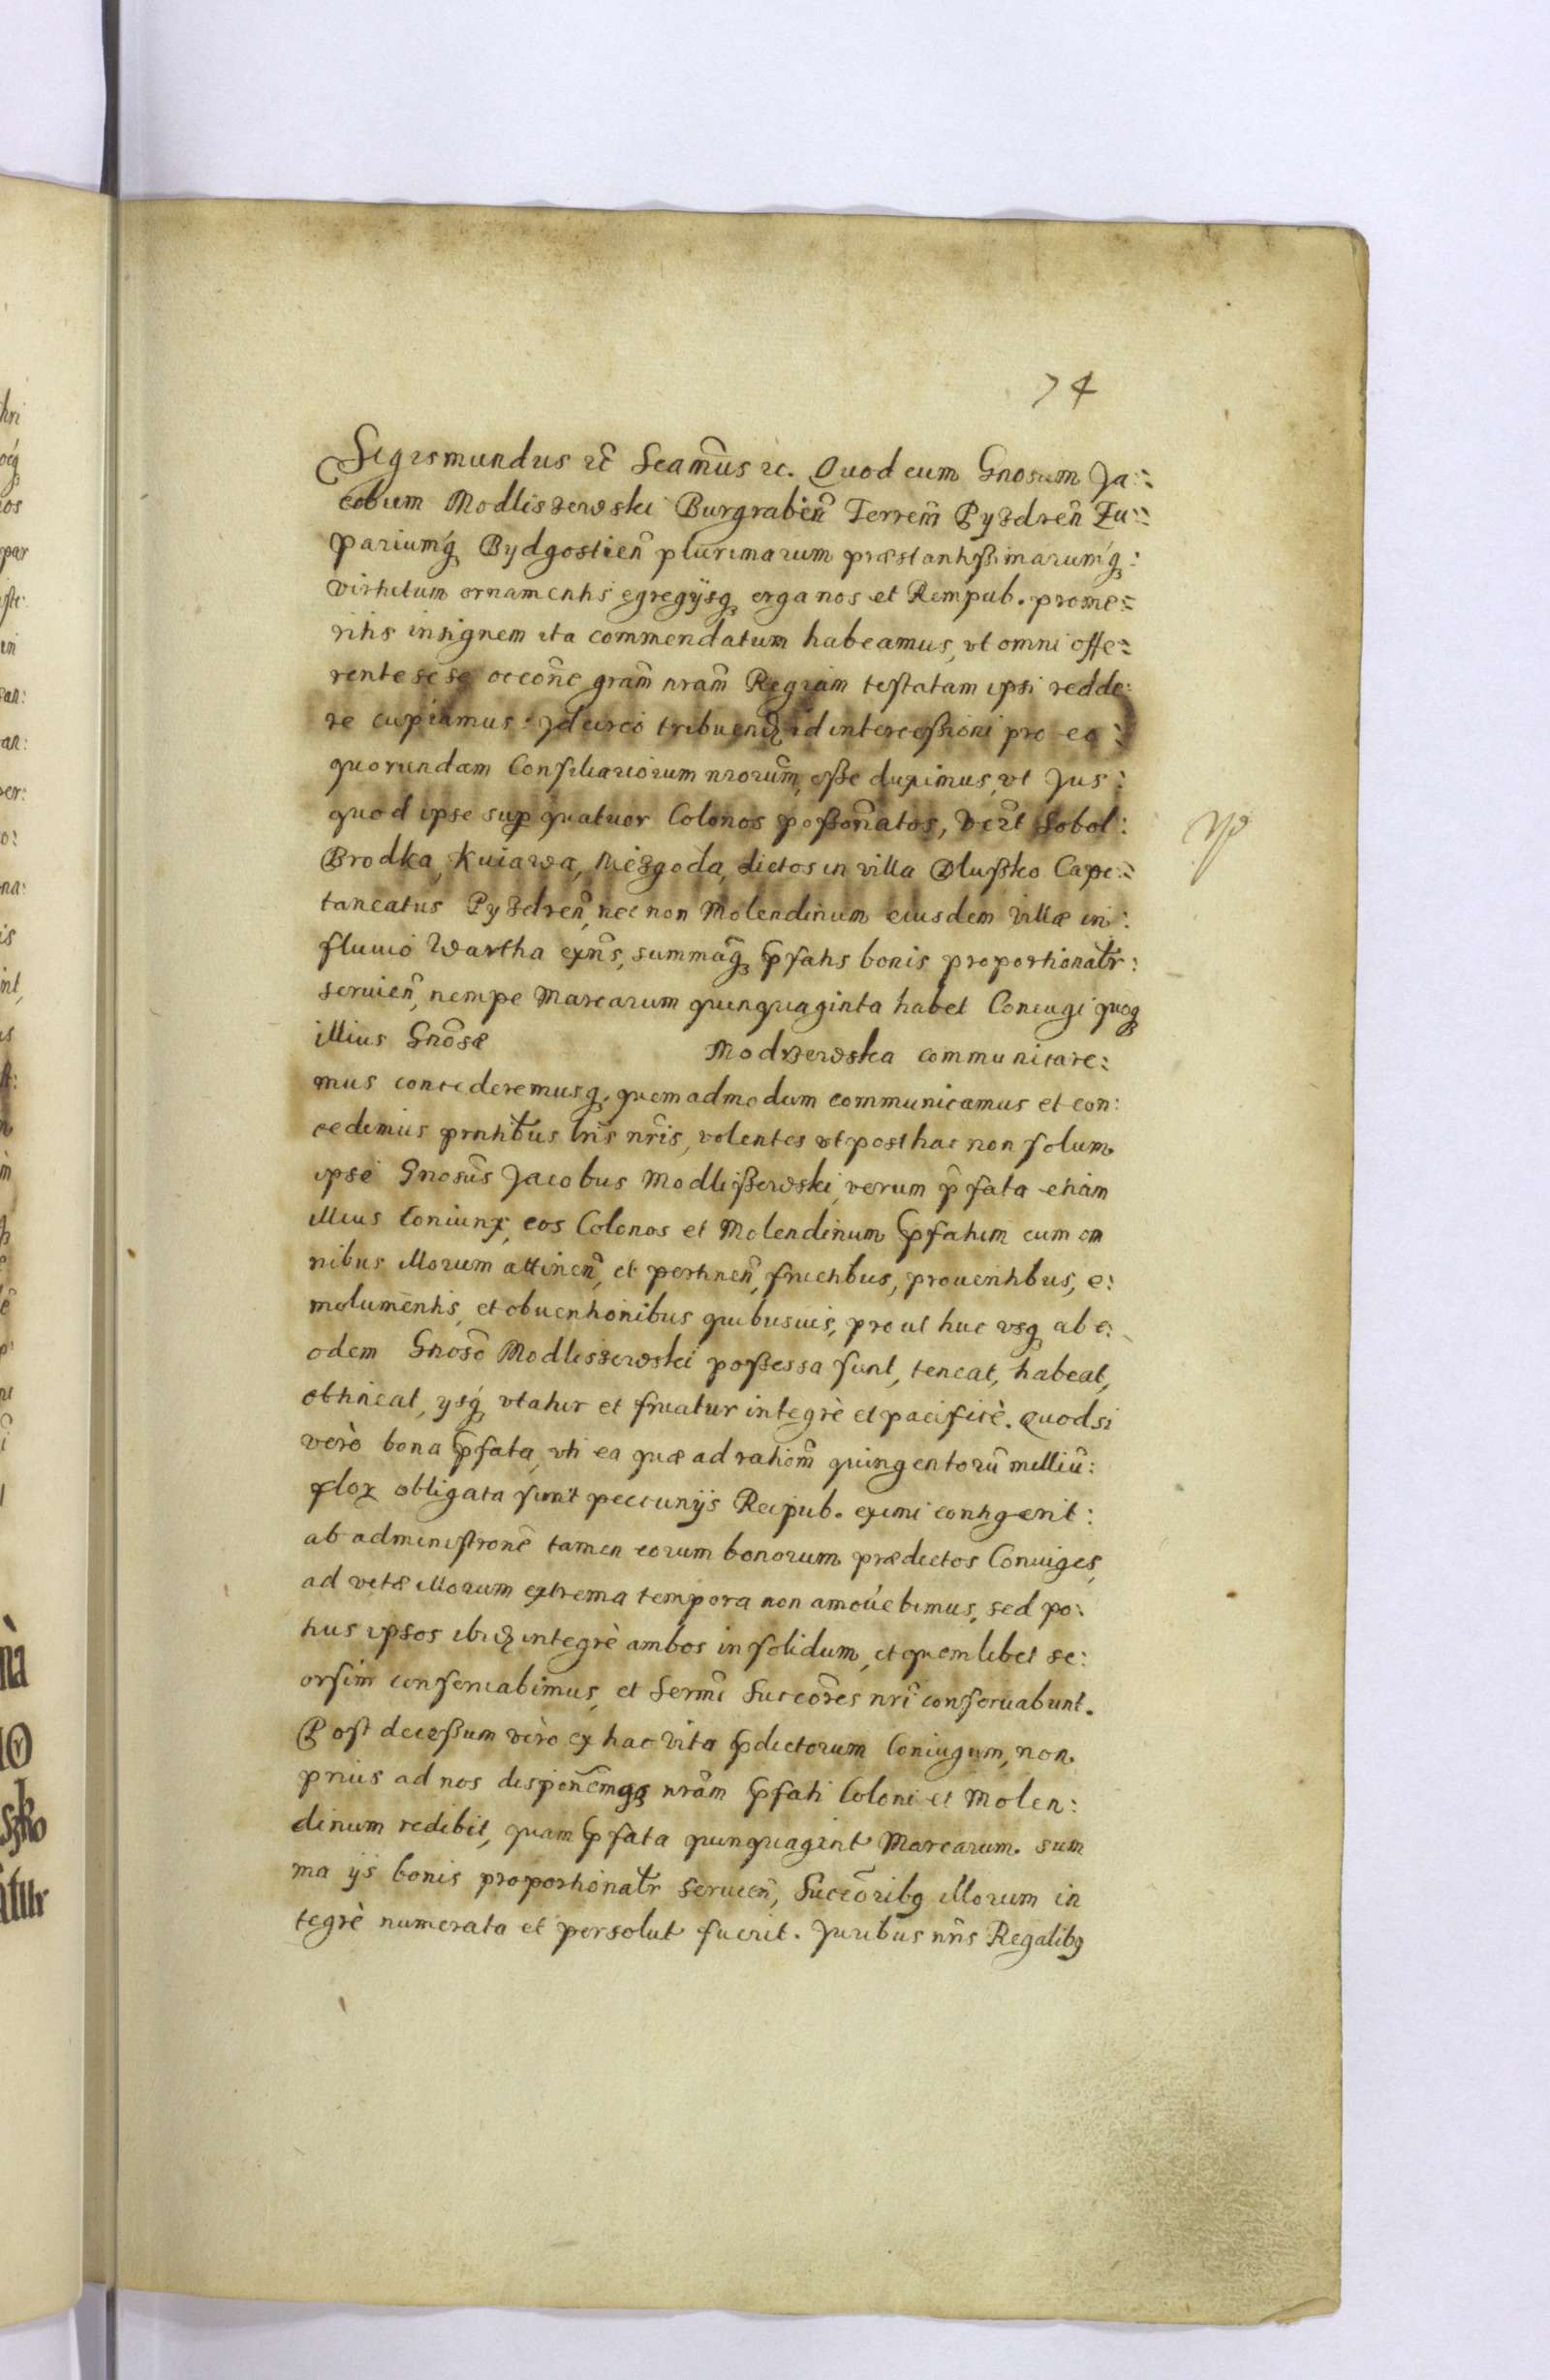 74
Sigismundus etc̃ Scãmus etc. Quod cum Gnosum Ja=
cobum Modliszewski Burgrabień Terreñ Pyzdreñ Zu=
pariumq́ Bydgostień plurimarum præstantissimarumq́:
virtutum ornamentis egregijsq́ erga nos et Rempub. prome=
ritis insignem ita commendatum habeamus, vt omni offe=
rente sese occoñe gram̃ nram̃ Regiam testatam ipsi redde:
re cupiamus: Jdcirco id intercessioni pro eo:
quorundam Consiliariorum nrorum̃, esse duximus, vt Jus:
quod ipse sup quatuor Colonos possoñatos, Sobol:
Brodka, Kuiawa, Niezgoda, dictos in villa Dlussko Capi=
taneatus Pyzdreñ, nec non Molendinum eiusdem villæ in:
fluuio Wartha exñs, summaq́ pfatis bonis proportionatr̃:
seruień, nempe Marcarum quinquaginta habet Coniugi quoq́
illius Gnõsæ Modrzewska communicare:
mus concederemusq́, quemadmodum communicamus et con:
cedimus prntibus̃ lris̃ nris̃, volentes vt posthac non solum
ipse Gnosus̃ Jacobus Modlissewski, verum p̃fata etiam
illius Coniunx, eos Colonos et Molendinum p̃fatum cum om
nibus illorum attineñ, et pertineñ, fructibus, prouentibus, e:
molumentis, et obuentionibus quibusuis, prout huc vsq́ ab e:
odem Gnosõ Modliszewski possessa sunt, teneat, habeat,
obtineat, ysq́ vtatur et fruatur integrè et pacificè. Quodsi
verò bona p̃fata, vti ea quæ ad rationm̃ quingentorũ milliũ:
flor obligata sunt pecunijs Reipub. eximi contigerit:
ab administronẽ tamen eorum bonorum prædictos Coniuges,
ad vitæ illorum extrema tempora non amouebimus, sed po:
tius ipsos integrè ambos in solidum, et quemlibet se:
orsim conseruabimus, et Sermĩ Succores̃ nrĩ conseruabunt.
Post decessum vero ex hac vita p̃dictorum Coniugum, non
prius ad nos nram̃ p̃fati Coloni et Molen:
dinum redibit, quam p̃fata quinquagint Marcarum. sum
ma ijs bonis proportionatr̃ seruień, Succõribq illorum in
tegrè numerata et persolut fuerit. Juribus nris̃ Regalibq